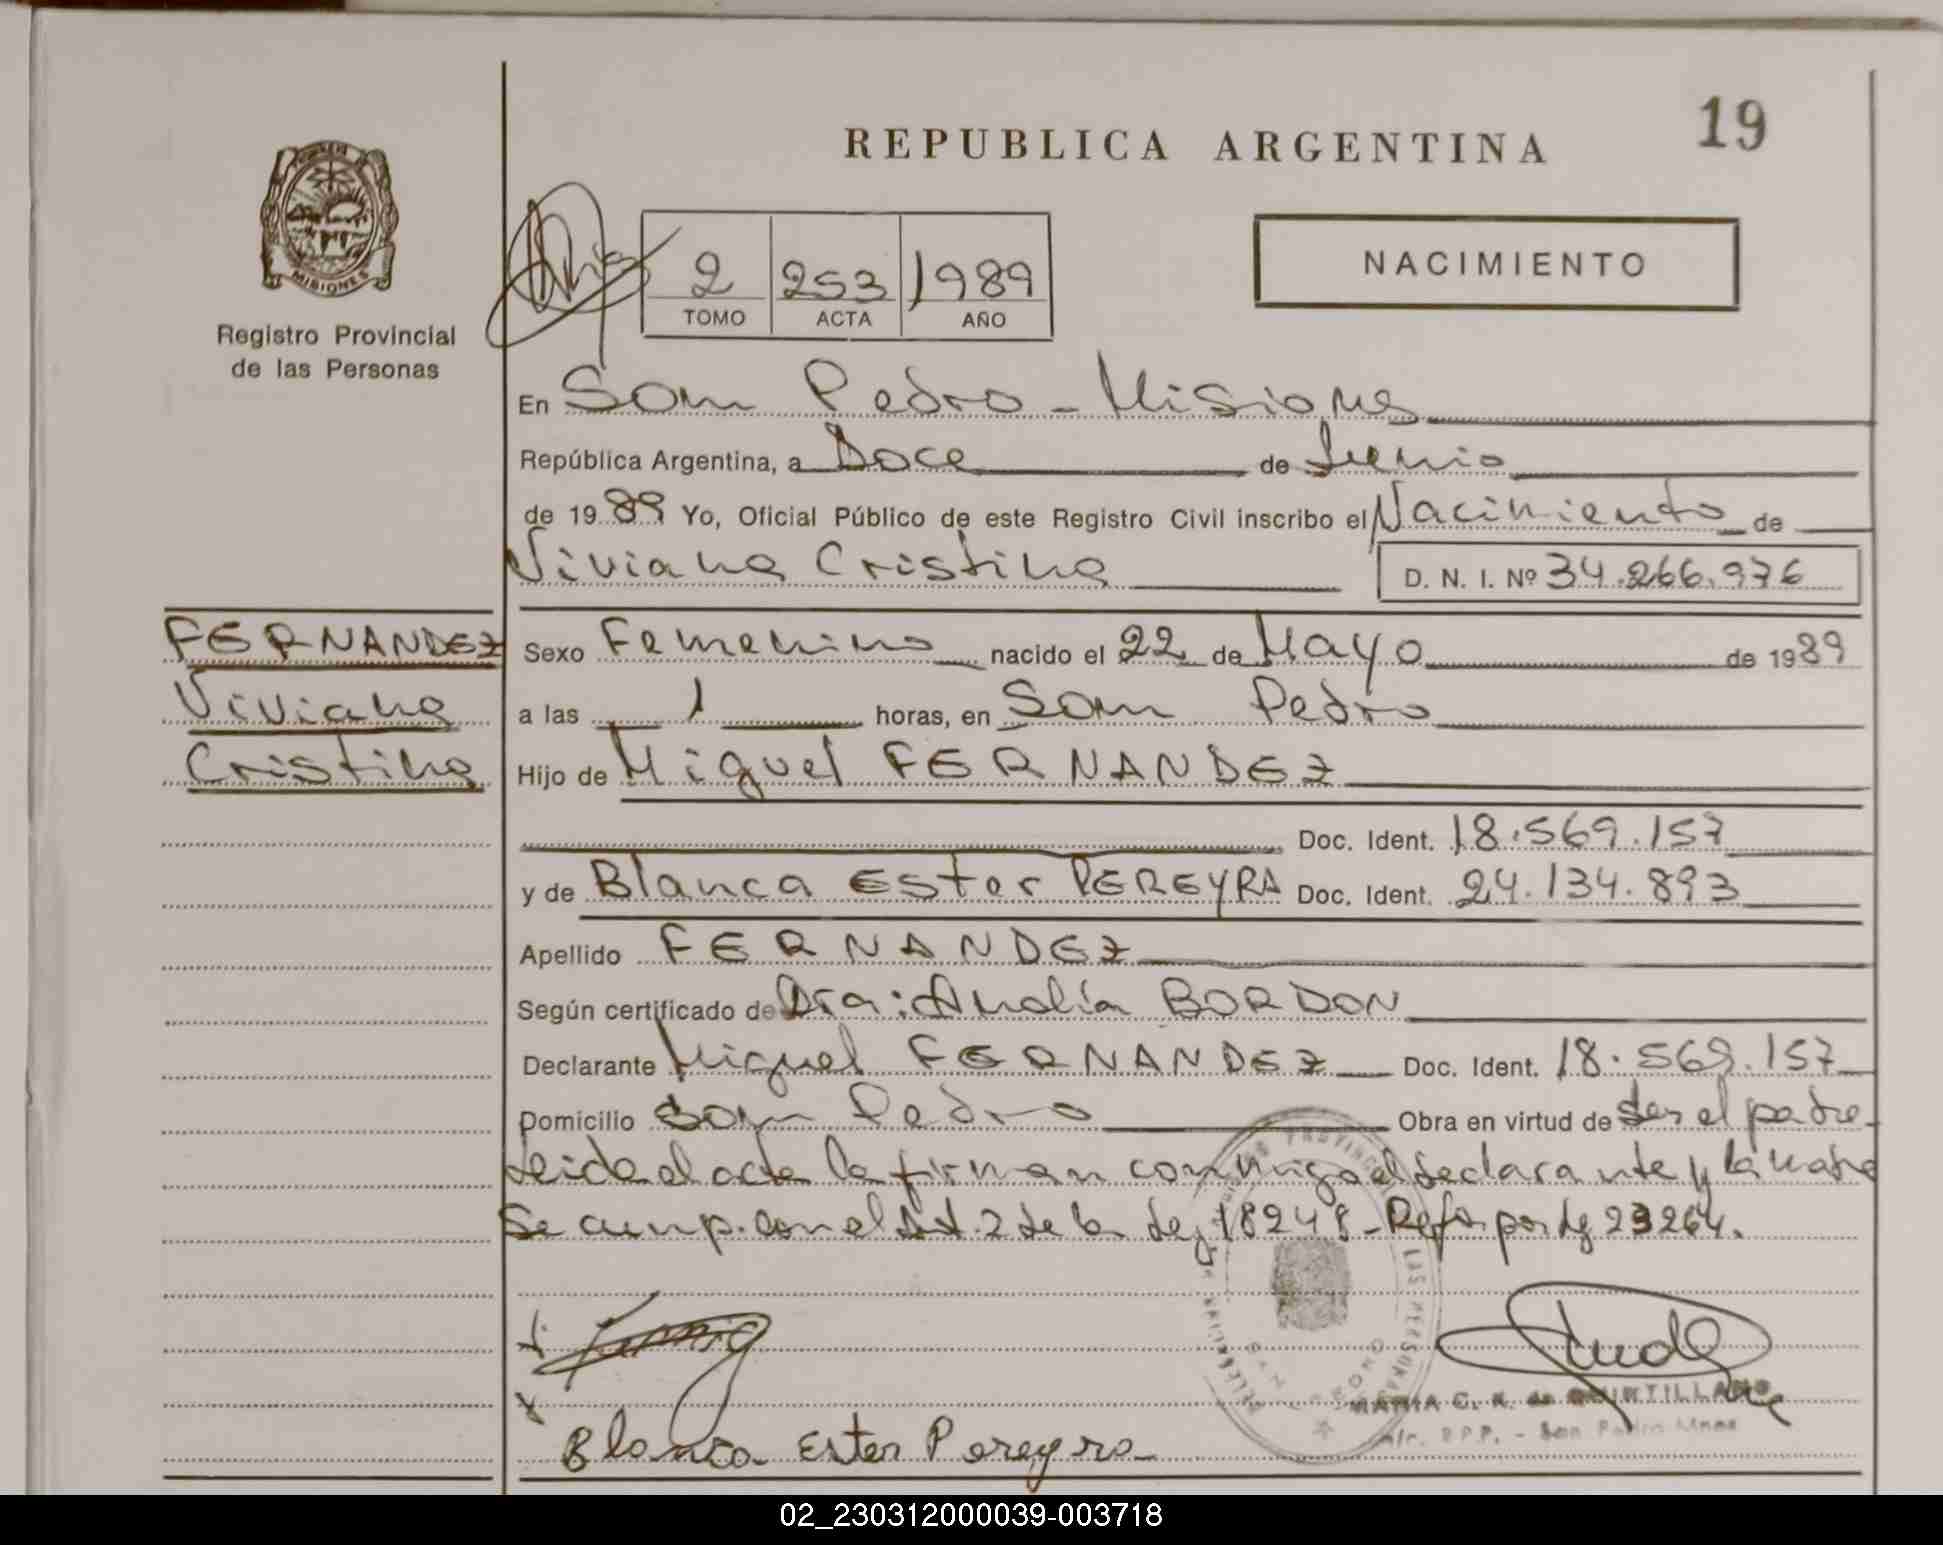 REPUBLICA ARGENTINA
19
MISIONES
Registro Provincial
de las Personas
2 253 1989
TOMO ACTA AÑO
NACIMIENTO
En San Pedro - Misiones
República Argentina, a Doce de Junio
de 1989 Yo, Oficial Público de este Registro Civil inscribo el Nacimiento de
Viviana Cristina
D. N. I. Nº 34.266.976
FERNANDEZ
Viviana
Cristina
Sexo Femenino nacido el 22 de Mayo de 1989
a las 1 horas, en San Pedro
Hijo de Miguel FERNANDEZ
Doc. Ident. 18.569.157
y de Blanca Ester PEREYRA Doc. Ident. 24.134.893
Apellido FERNANDEZ
Según certificado de Dra: Analía BORDON
Declarante Miguel FERNANDEZ Doc. Ident. 18.569.157
Domicilio San Pedro Obra en virtud de Ser el padre-
Leida el acta la firman conmigo el declarante y la madre
Se cump. con el Art. 2 de la Ley 18248 - Ref. por Ley 23264.
Blanca Ester Pereyra
MARIA C. R. de QUINTILLAN
R.P.P. - San Pedro Mnes
02_230312000039-003718